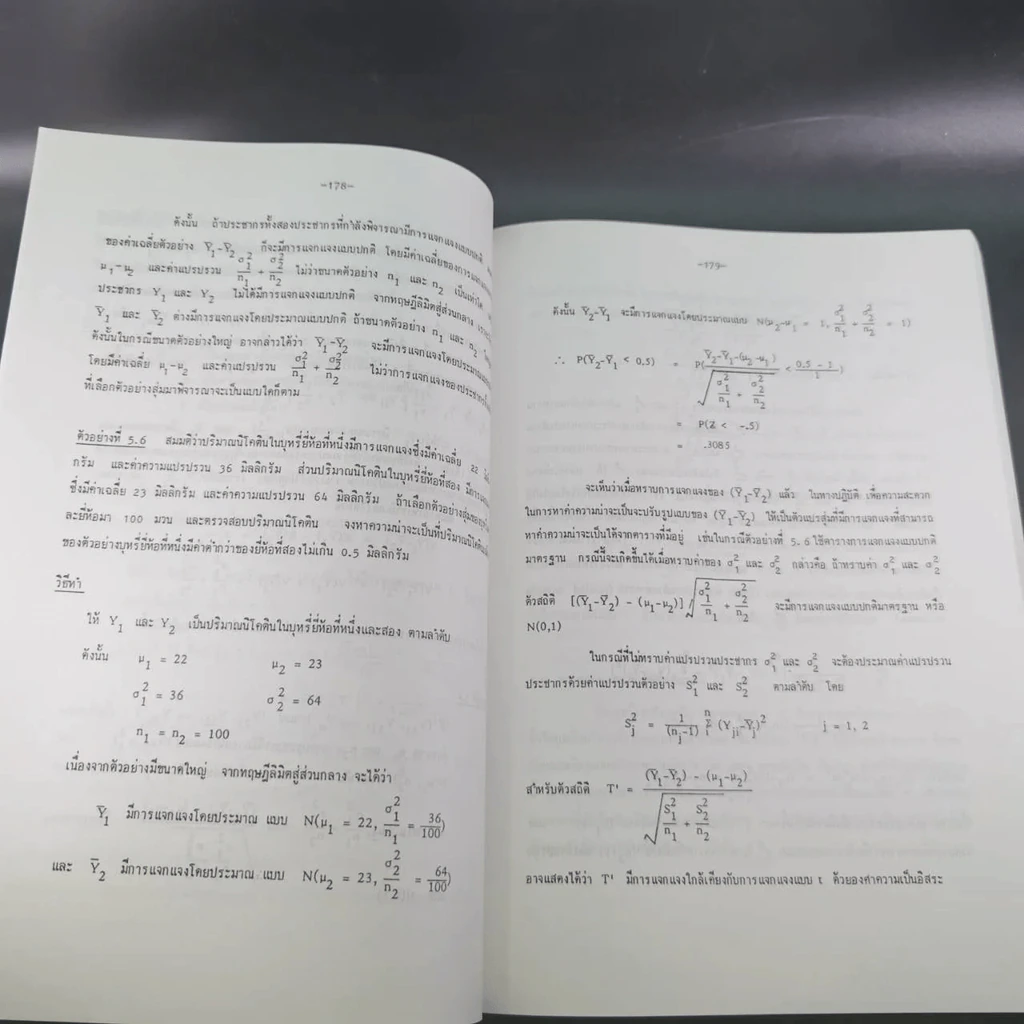 -178-
ดังนั้น ถ้าประชากรทั้งสองประชากรที่กำลังพิจารณามีการแจกแจงแบบปกติ
ของค่าเฉลี่ยตัวอย่าง Ȳ₁-Ȳ₂ ก็จะมีการแจกแจงแบบปกติ โดยมีค่าเฉลี่ยของการแจกแจง
μ₁-μ₂ และค่าแปรปรวน σ₁²/n₁ + σ₂²/n₂ ไม่ว่าขนาดตัวอย่าง n₁ และ n₂ เป็นเท่าใด
ประชากร Y₁ และ Y₂ ไม่ได้มีการแจกแจงแบบปกติ จากทฤษฎีลิมิตสู่ส่วนกลาง
Ȳ₁ และ Ȳ₂ ต่างมีการแจกแจงโดยประมาณแบบปกติ ถ้าขนาดตัวอย่าง n₁ และ n₂
ดังนั้นในกรณีขนาดตัวอย่างใหญ่ อาจกล่าวได้ว่า Ȳ₁-Ȳ₂ จะมีการแจกแจงโดยประมาณ
โดยมีค่าเฉลี่ย μ₁-μ₂ และค่าแปรปรวน σ₁²/n₁ + σ₂²/n₂ ไม่ว่าการแจกแจงของประชากร
ที่เลือกตัวอย่างสุ่มมาพิจารณาจะเป็นแบบใดก็ตาม
ตัวอย่างที่ 5.6 สมมติว่าปริมาณนิโคตินในบุหรี่ยี่ห้อที่หนึ่งมีการแจกแจงซึ่งมีค่าเฉลี่ย 22
กรัม และค่าความแปรปรวน 36 มิลลิกรัม ส่วนปริมาณนิโคตินในบุหรี่ยี่ห้อที่สอง มีการแจกแจง
ซึ่งมีค่าเฉลี่ย 23 มิลลิกรัม และค่าความแปรปรวน 64 มิลลิกรัม ถ้าเลือกตัวอย่างสุ่มของ
ละยี่ห้อมา 100 มวน และตรวจสอบปริมาณนิโคติน จงหาความน่าจะเป็นที่ปริมาณนิโคติน
ของตัวอย่างบุหรี่ยี่ห้อที่หนึ่งมีค่าต่ำกว่าของยี่ห้อที่สองไม่เกิน 0.5 มิลลิกรัม
วิธีทำ
ให้ Y₁ และ Y₂ เป็นปริมาณนิโคตินในบุหรี่ยี่ห้อที่หนึ่งและสอง ตามลำดับ
ดังนั้น μ₁ = 22 μ₂ = 23
σ₁² = 36 σ₂² = 64
n₁ = n₂ = 100
เนื่องจากตัวอย่างมีขนาดใหญ่ จากทฤษฎีลิมิตสู่ส่วนกลาง จะได้ว่า
Ȳ₁ มีการแจกแจงโดยประมาณ แบบ N(μ₁ = 22, σ₁²/n₁ = 36/100)
และ Ȳ₂ มีการแจกแจงโดยประมาณ แบบ N(μ₂ = 23, σ₂²/n₂ = 64/100)
-179-
ดังนั้น Ȳ₂-Ȳ₁ จะมีการแจกแจงโดยประมาณแบบ N(μ₂-μ₁ = 1, σ₁²/n₁ + σ₂²/n₂ = 1)
∴ P(Ȳ₂-Ȳ₁ < 0.5) = P((Ȳ₂-Ȳ₁-(μ₂-μ₁))/√(σ₁²/n₁ + σ₂²/n₂) < (0.5 - 1)/1)
= P(Z < -.5)
= .3085
จะเห็นว่าเมื่อทราบการแจกแจงของ (Ȳ₁-Ȳ₂) แล้ว ในทางปฏิบัติ เพื่อความสะดวก
ในการหาค่าความน่าจะเป็นจะปรับรูปแบบของ (Ȳ₁-Ȳ₂) ให้เป็นตัวแปรสุ่มที่มีการแจกแจงที่สามารถ
หาค่าความน่าจะเป็นได้จากตารางที่มีอยู่ เช่นในกรณีตัวอย่างที่ 5.6 ใช้ตารางการแจกแจงแบบปกติ
มาตรฐาน กรณีนี้จะเกิดขึ้นได้เมื่อทราบค่าของ σ₁² และ σ₂² กล่าวคือ ถ้าทราบค่า σ₁² และ σ₂²
ตัวสถิติ [(Ȳ₁-Ȳ₂) - (μ₁-μ₂)]√(σ₁²/n₁ + σ₂²/n₂) จะมีการแจกแจงแบบปกติมาตรฐาน หรือ
N(0,1)
ในกรณีที่ไม่ทราบค่าแปรปรวนประชากร σ₁² และ σ₂² จะต้องประมาณค่าแปรปรวน
ประชากรด้วยค่าแปรปรวนตัวอย่าง S₁² และ S₂² ตามลำดับ โดย
Sⱼ² = 1/(nⱼ-1) Σᵢⁿ (Yⱼᵢ-Ȳⱼ)² j = 1, 2
สำหรับตัวสถิติ T' = ((Ȳ₁-Ȳ₂) - (μ₁-μ₂))/√(S₁²/n₁ + S₂²/n₂)
อาจแสดงได้ว่า T' มีการแจกแจงใกล้เคียงกับการแจกแจงแบบ t ด้วยองศาความเป็นอิสระ